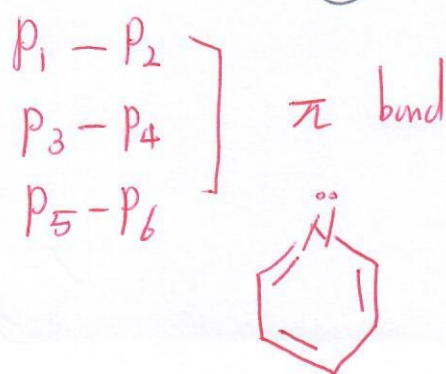 P₁ — P₂
P₃ — P₄
P₅ — P₆
π bond
N̈